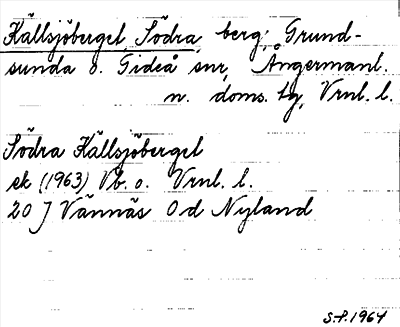 Källsjöberget, Södra, berg: Grund-
sunda o. Gideå snr, Ångermanl.
n. doms. tg, Vrnl. l.
Södra Källsjöberget
ek (1963) Vb. o. Vrnl. l.
20 J Vännäs 0 d Nyland
S.P. 1964